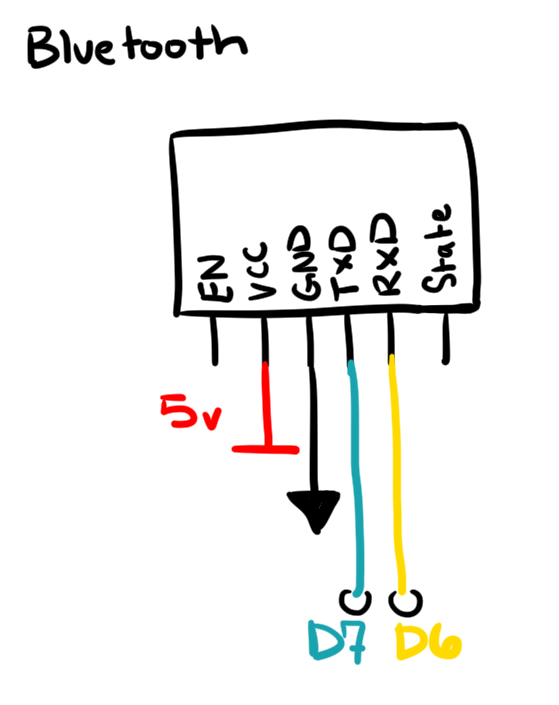 Bluetooth
EN
VCC
GND
TXD
RXD
State
5v
D7
D6